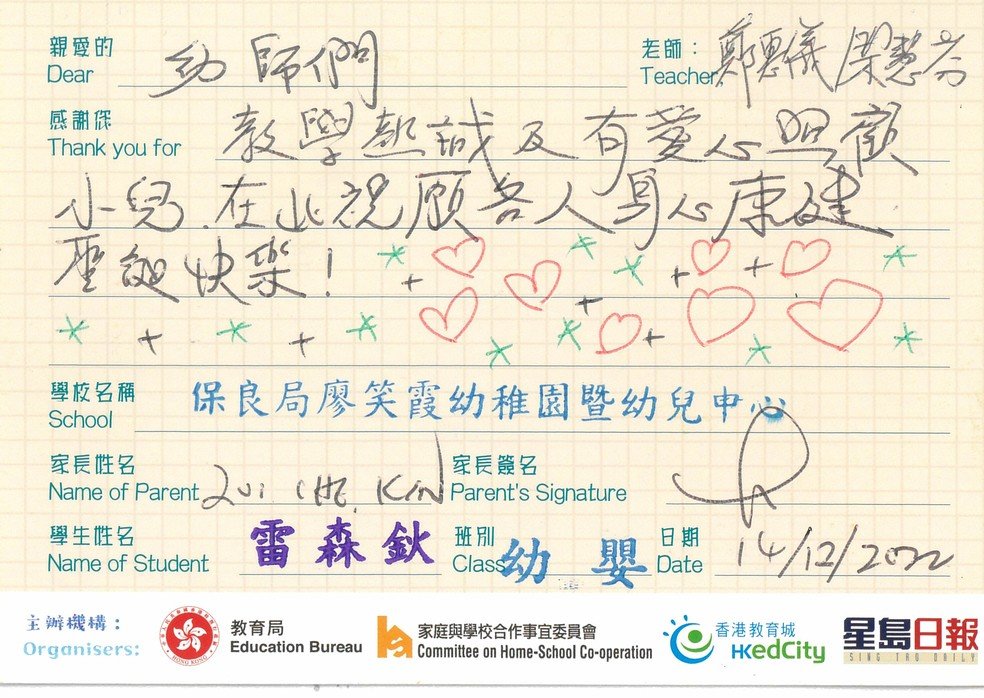 親愛的 幼師們 老師：鄭惠儀 梁慧芬
Dear Teacher
感謝您 教學熱誠及有愛心照顧
Thank you for
小兒.在此祝願各人身心康健
聖誕快樂！
學校名稱 保良局廖笑霞幼稚園暨幼兒中心
School
家長性名 家長簽名
Name of Parent LUI CHE KIN Parent's Signature
學生性名 雷森鈥 班別 幼嬰 日期 14/12/2022
Name of Student Class Date
主辦機構： 教育局 家庭與學校合作事宜委員會 香港教育城 星島日報
Organisers: HONG KONG Education Bureau Committee on Home-School Co-operation HKedCity SING TAO DAILY